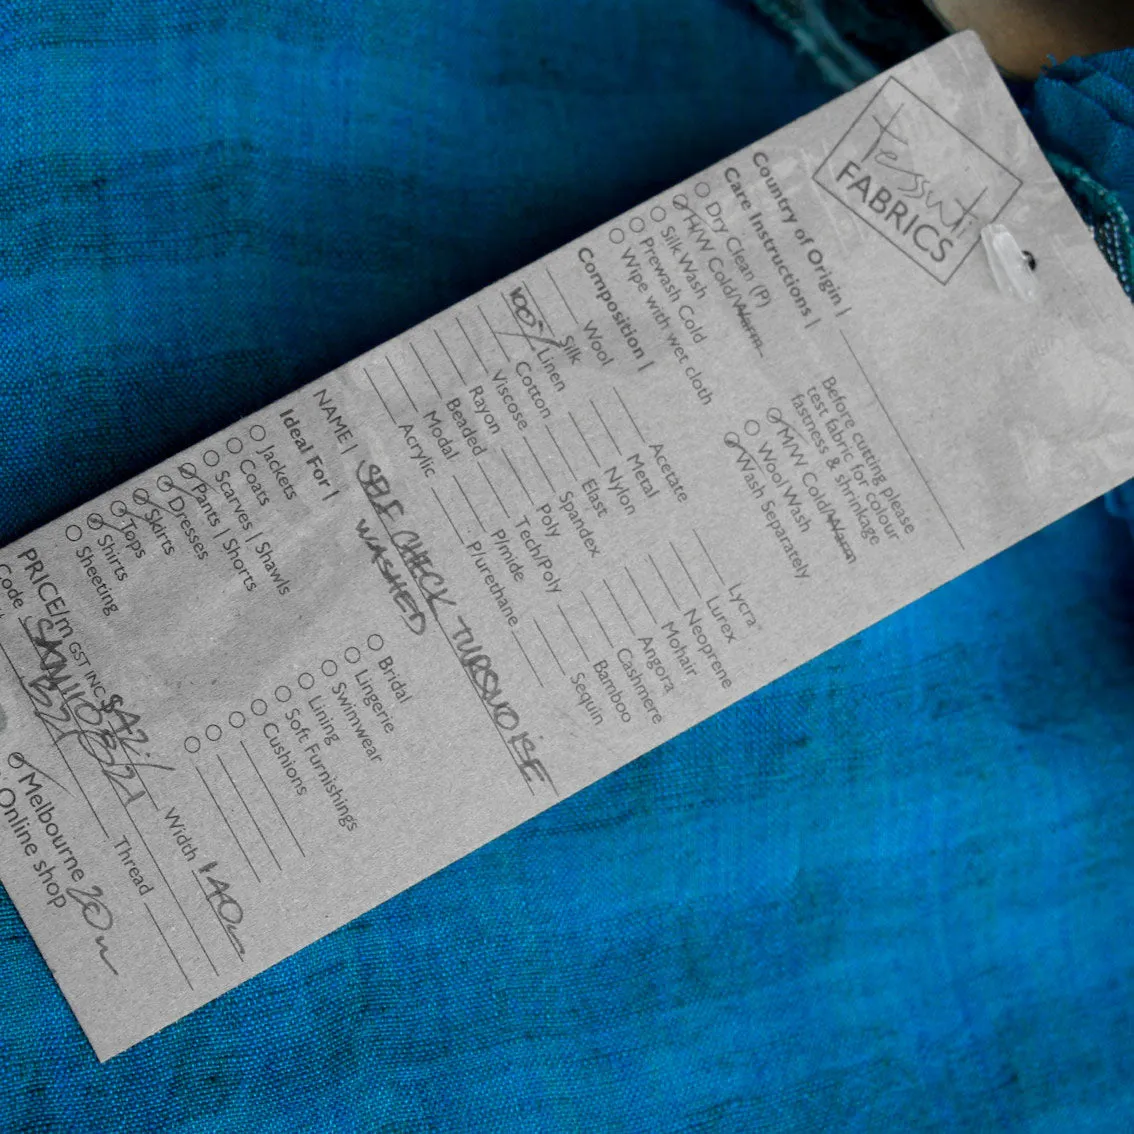 Tessuti
FABRICS
Country of Origin |
Care Instructions |
Dry Clean (P)
H/W Cold/Warm
Silk Wash
Prewash Cold
Wipe with wet cloth
Before cutting please
test fabric for colour
fastness & shrinkage
M/W Cold/Warm
Wool Wash
Wash Separately
Composition |
Wool
Silk
100% Linen
Cotton
Viscose
Rayon
Beaded
Modal
Acrylic
Acetate
Metal
Nylon
Elast
Spandex
Poly
Tech/Poly
P/mide
P/urethane
Lycra™
Lurex
Neoprene
Mohair
Angora
Cashmere
Bamboo
Sequin
NAME | SELF CHECK TURQUOISE
WASHED
Ideal For |
Jackets
Coats
Scarves | Shawls
Pants | Shorts
Dresses
Skirts
Tops
Shirts
Sheeting
Bridal
Lingerie
Swimwear
Lining
Soft Furnishings
Cushions
PRICE/m GST INC
Width 140
Code
Thread
Melbourne 20m
Online shop